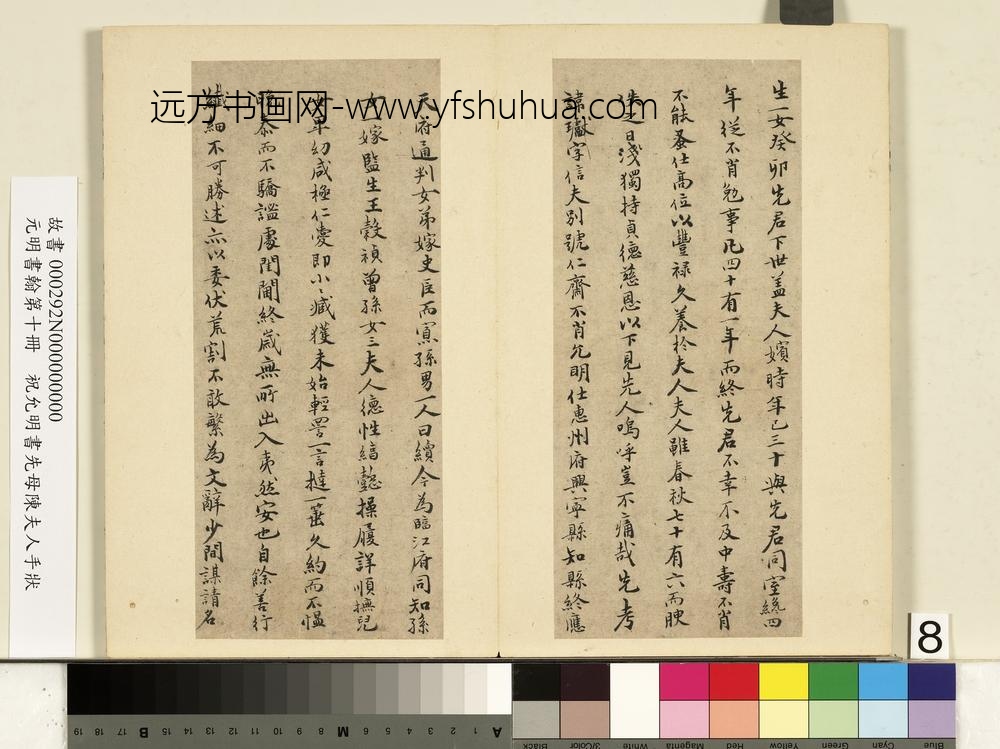 生一女癸卯先君下世盖夫人嬪時年已三十與先君同室纔四
年從不肖勉事凡四十有一年而終先君不幸不及中壽不肖
不能蚤仕高位以豐禄久養於夫人夫人雖春秋七十有六而腴
日淺獨持貞德慈恩以下見先人嗚呼豈不痛哉先考
諱瓛字信夫別號仁齋不肖允明仕惠州府興寧縣知縣終應
天府通判女弟嫁史臣而寡孫男一人曰續今為臨江府同知孫
女嫁監生王穀禎曾孫女三夫人德性縞懿操履詳順撫兒
女卑幼咸極仁愛即小小臧獲未始輕詈一言撻一箠久約而不愠
晚泰而不驕謐處閨閫終歲無所出入夷然安也自餘善行
纖細不可勝述亦以委伏荒割不敢繁為文辭少間謀請名
远方书画网-www.yfshuhua.com
故書 000292N000000000
元明書翰第十冊 祝允明書先母陳夫人手狀
8
19 18 17 B 16 15 14 13 12 11 10 9 8 M 7 6 5 4 3 2 1 A
Black 3/Color White Magenta Red Yellow Green Cyan Blue